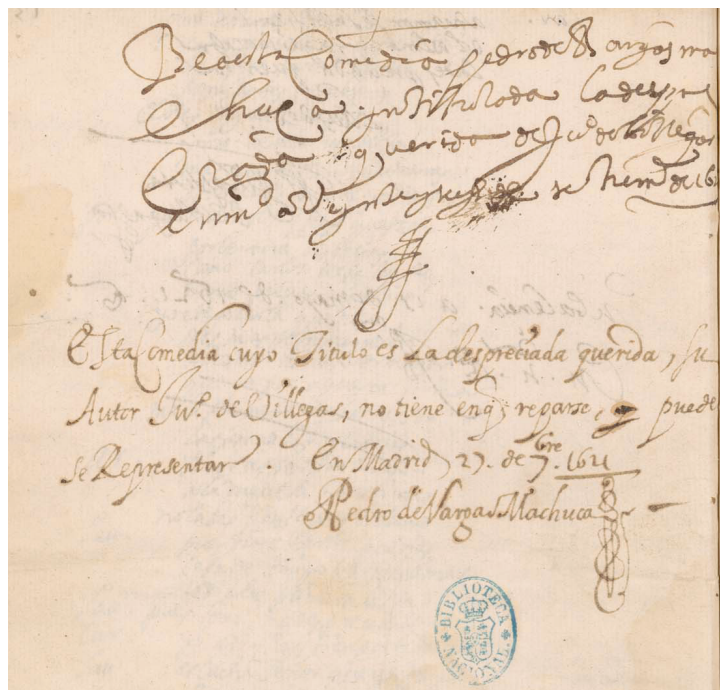 Bea esta Comedia Pedro de Bargas ma
chuca yntitulada la despre
ciada querida de Ju.º de Villegas
En md a Veynte y de setiem.e de 16
Esta Comedia cuyo Titulo es La despreciada querida, su
Autor Ju.º de Villegas, no tiene en q reparse, y puede
se Representar. En Madrid, 27. de 7.bre 1621
Pedro de Vargas Machuca
BIBLIOTECA NACIONAL